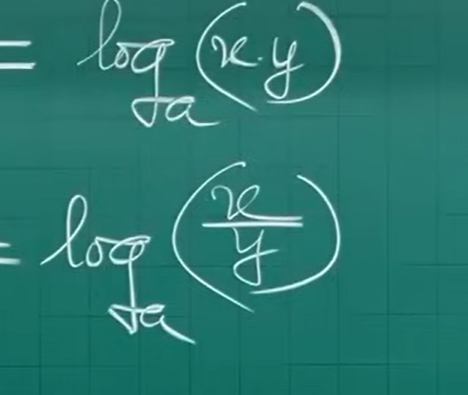 = log_a (x.y)
= log_a (x/y)